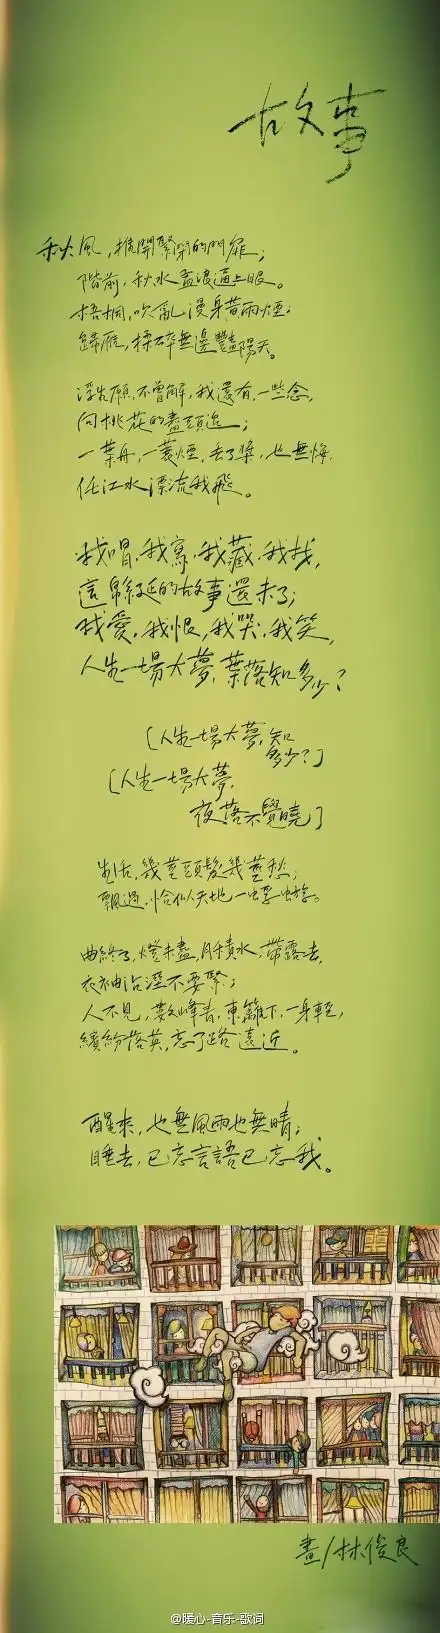 故事
秋風,推開緊閉的門扉;
階前,秋水孟浪逼上眼。
梧桐,吹亂漫身黃雨煙;
歸雁,揉碎無邊豔陽天。
浮生願,不曾解,我還有,一些念,
向桃花的盡頭追;
一葉舟,一蓑煙,丟了槳,也無悔,
任江水漂流我飛。
我唱,我寫,我藏,我找,
這綿延的故事還未了;
我愛,我恨,我哭,我笑,
人生一場大夢,葉落知多少?
(人生一場大夢,知
多少?)
(人生一場大夢,
夜落不覺曉)
生活,幾莖頭髮幾莖愁;
飄過,恰似天地一蜉蝣。
曲終了,燈未盡,月積水,帶露去,
衣袖沾溼不要緊;
人不見,數峰青,東籬下,一身輕,
繽紛落英,忘了路遠近。
醒來,也無風雨也無晴;
睡去,已忘言語已忘我。
畫/林俊良
@暖心-音乐-歌词